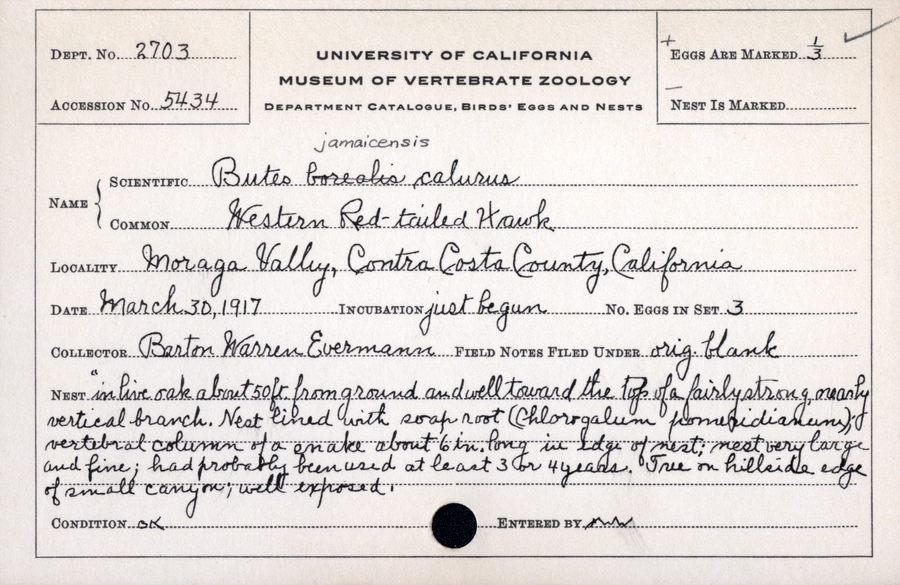 DEPT. No. 2703
ACCESSION No. 5434
UNIVERSITY OF CALIFORNIA
MUSEUM OF VERTEBRATE ZOOLOGY
DEPARTMENT CATALOGUE, BIRDS' EGGS AND NESTS
+ EGGS ARE MARKED 1/3 ✓
– NEST IS MARKED
jamaicensis
NAME
SCIENTIFIC Buteo borealis calurus
COMMON Western Red-tailed Hawk
LOCALITY Moraga Valley, Contra Costa County, California
DATE March 30, 1917 INCUBATION just begun No. EGGS IN SET 3
COLLECTOR Barton Warren Evermann FIELD NOTES FILED UNDER orig. blank
NEST "in live oak about 50 ft. from ground and well toward the top of a fairly strong, nearly
vertical branch. Nest lined with soap root (Chlorogalum pomeridianum);
vertebral column of a snake about 6 in. long in edge of nest; nest very large
and fine; had probably been used at least 3 or 4 years. Tree on hillside edge
of small canyon; well exposed.
CONDITION OK ENTERED BY